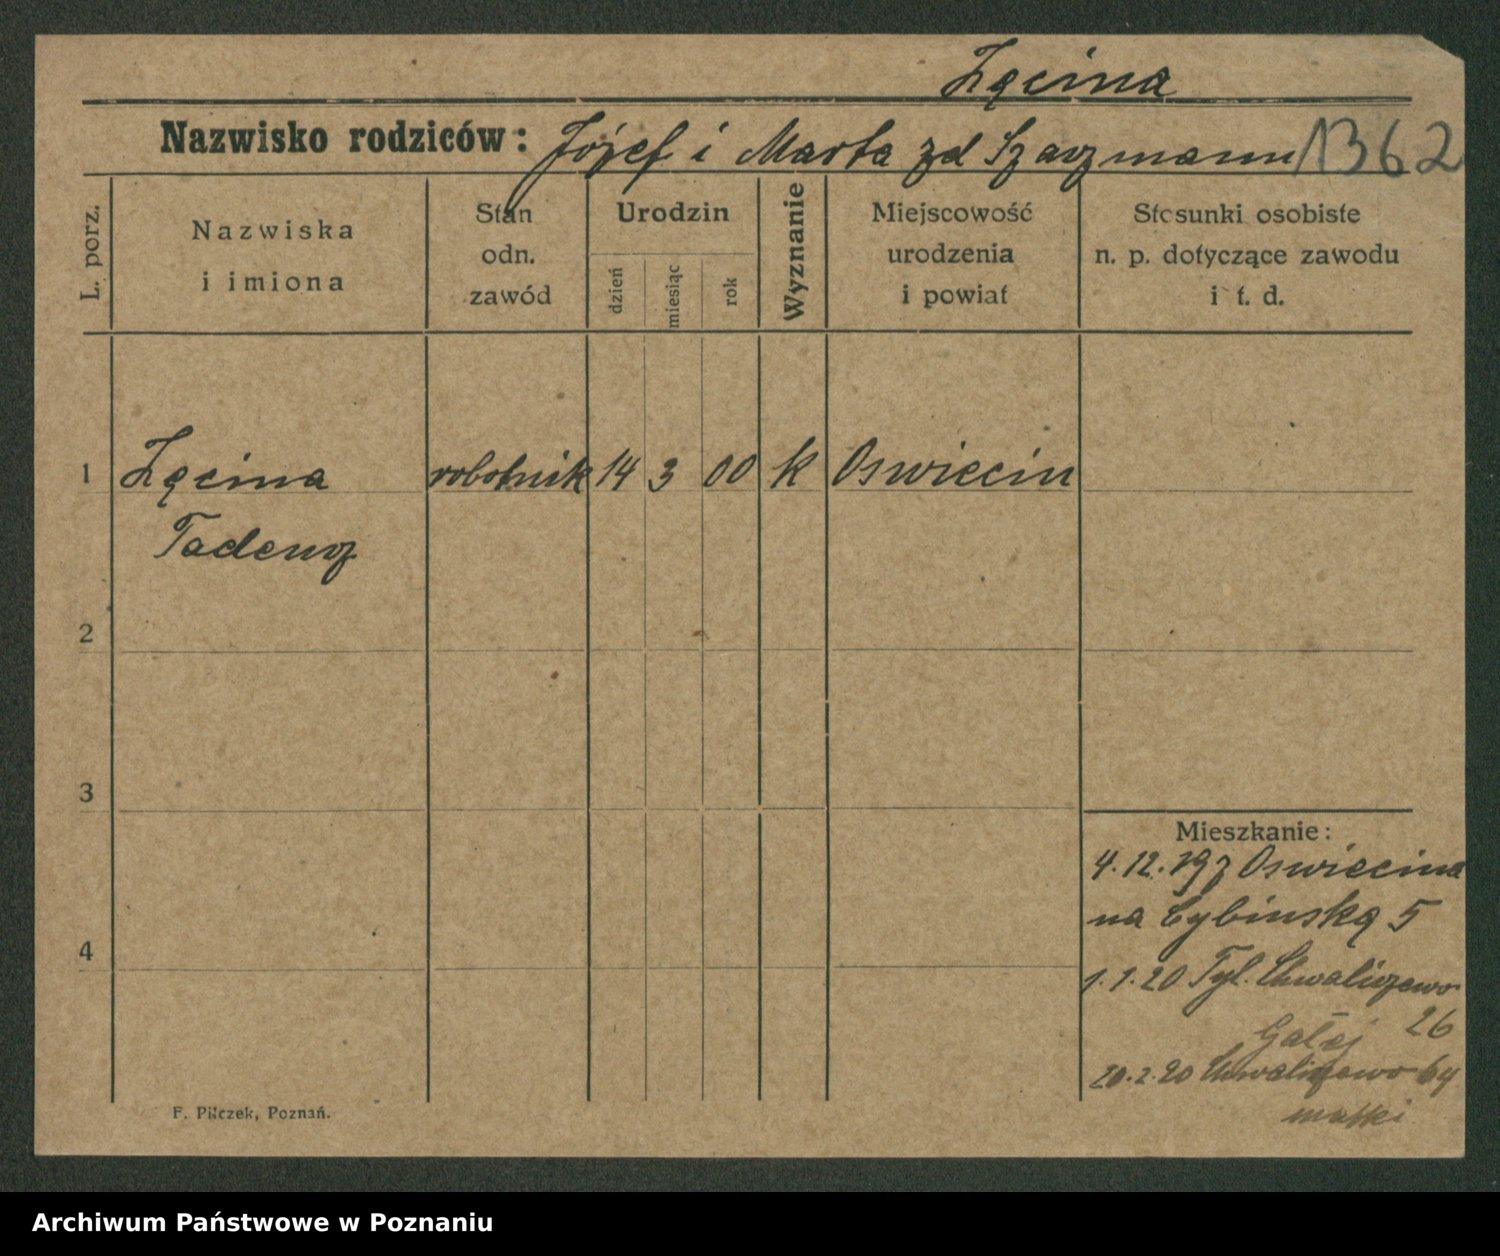 Zęcina
Nazwisko rodziców: Józef i Marta zd Szaczmann 1362
L. porz.
Nazwiska
i imiona
Stan
odn.
zawód
Urodzin
dzień
miesiąc
rok
Wyznanie
Miejscowość
urodzenia
i powiat
Stosunki osobiste
n. p. dotyczące zawodu
i t. d.
1 Zęcina robotnik 14 3 00 k Oswiecin
Tadeusz
2
3
Mieszkanie:
4.12.19 z Oswiecina
na Cybinską 5
4
1.1.20 Tyl. Chwaliszewo
26
Gałaj
20.2.20 Chwaliszewo 64
matki
F. Pilczek, Poznań.
Archiwum Państwowe w Poznaniu